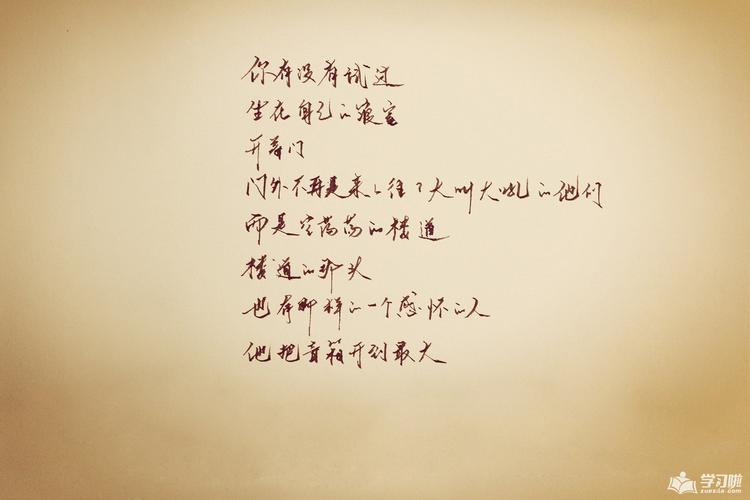 你有没有试过
坐在自己的寝室
开着门
门外不再是来来往往大叫大吼的他们
而是空荡荡的楼道
楼道的那头
也有那样的一个感怀的人
他把音箱开到最大
学习啦
xuexila.com